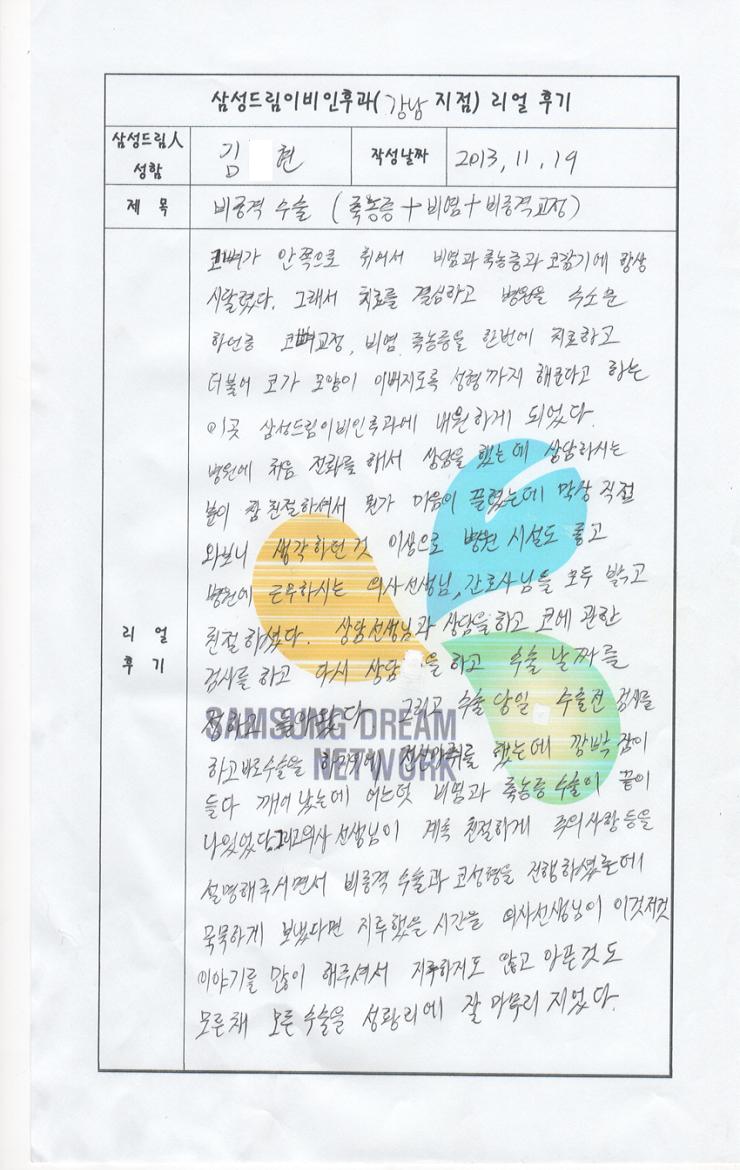 삼성드림이비인후과(강남 지점) 리얼 후기
삼성드림人 성함
김 현
작성날짜
2013, 11, 19
제 목
비중격 수술 (축농증+비염+비중격교정)
리 얼 후 기
코뼈가 안쪽으로 휘어서 비염과 축농증과 코감기에 항상
시달렸다. 그래서 치료를 결심하고 병원을 수소문
하던중 코뼈교정, 비염, 축농증을 한번에 치료하고
더불어 코가 모양이 이뻐지도록 성형까지 해준다고 하는
이곳 삼성드림이비인후과에 내원하게 되었다.
병원에 처음 전화를 해서 상담을 했는데 상담하시는
분이 참 친절하셔서 뭔가 마음이 끌렸는데 막상 직접
와보니 생각하던것 이상으로 병원 시설도 좋고
병원에 근무하시는 의사선생님, 간호사님들 모두 밝고
친절하셨다. 상담선생님과 상담을하고 코에 관한
검사를 하고 다시 상담 을하고 수술날짜를
정하고 돌아왔다 그리고 수술당일 수술전 검사를
하고바로수술을 하기위해 전신마취를 했는데 깜빡 잠이
들다 깨어났는데 어느덧 비염과 축농증 수술이 끝이
나있었다.그리고의사 선생님이 계속 친절하게 주의사항등을
설명해주시면서 비중격 수술과 코성형을 진행하셨는데
묵묵하게 보냈다면 지루했을 시간을 의사선생님이 이것저것
이야기를 많이 해주셔서 지루하지도 않고 아픈것도
모른채 모든수술을 성황리에 잘 마무리 지었다.
SAMSUNG DREAM
NETWORK